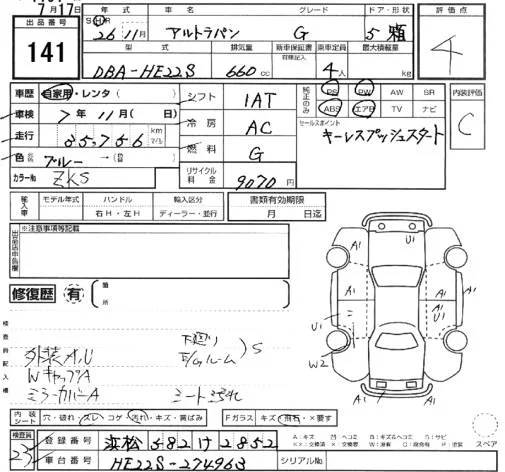 7月17日
出品番号
141
年式
SH 26年11月
車名
アルトラパン
グレード
G
ドア・形状
5 箱
評価点
4
型式
DBA-HE22S
排気量
660 cc
新車保証書
有保記入
乗車定員
4人
最大積載量
kg
車歴 自家用・レンタ( )
シフト IAT
純正のみ
PS PW AW SR
ABS エアB TV ナビ
内装評価
C
車検 7年11月( 日)
冷房 AC
セールスポイント
キーレスプッシュスタート
走行 85,756 km マイル
燃料 G
色 ブルー →(
カラーNo ZKS
リサイクル料金 9070円
輸入車
モデル年式
ハンドル
右H・左H
輸入区分
ディーラー・並行
書類有効期限
月 日迄
※注意事項等記載
修復歴 有
箇所
U1 U1 A1 A1 A1 A1 A1 A1 U1 W2
検査員記入欄
外装キ,U
WキャップA
ミラーカバーA
下廻り
E/Gルーム
S
シート汚れ
内装シート
穴・破れ・スレ・コゲ・汚れ・キズ・黄ばみ
Fガラス キズ・飛石・×要す
スペア
検査員
23
登録番号 浜松 582 け 2852
車台番号 HE22S-274963
シリアルNo